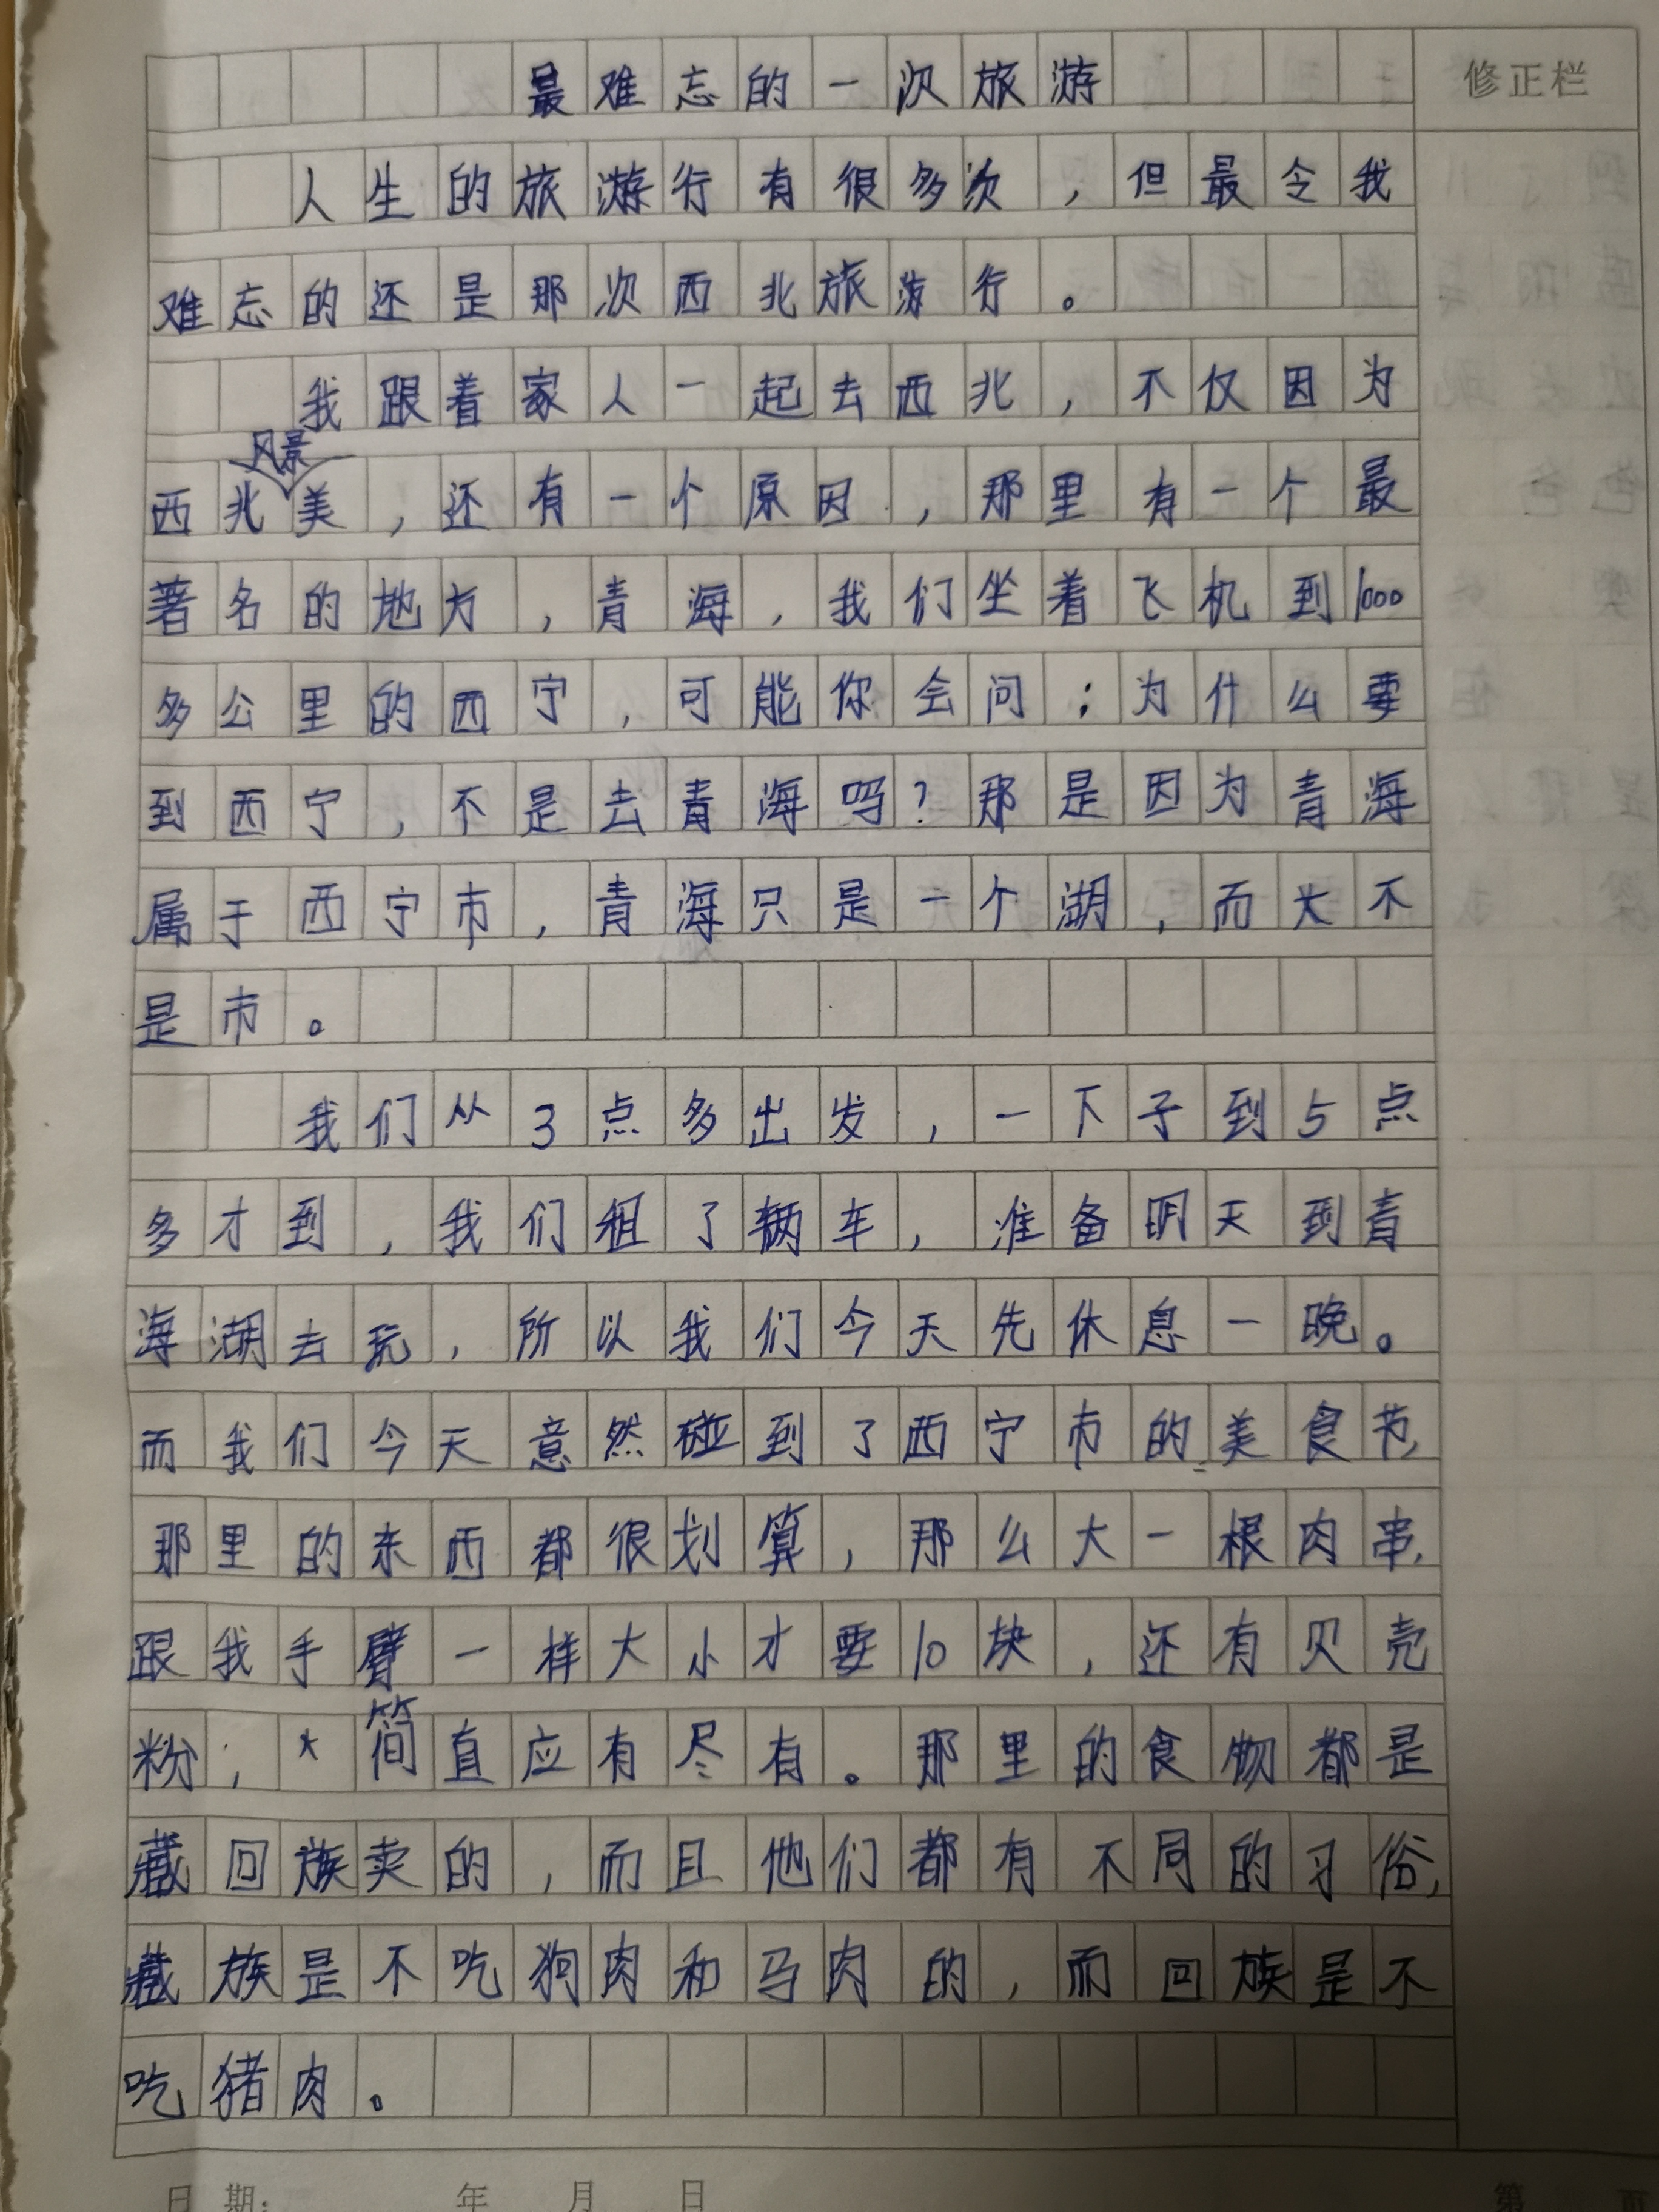 最难忘的一次旅游
修正栏
人生的旅游行有很多次，但最令我
难忘的还是那次西北旅游行。
我跟着家人一起去西北，不仅因为
风景
西北美，还有一个原因，那里有一个最
著名的地方，青海，我们坐着飞机到1000
多公里的西宁，可能你会问：为什么要
到西宁，不是去青海吗？那是因为青海
属于西宁市，青海只是一个湖，而大不
是市。
我们从3点多出发，一下子到5点
多才到，我们租了辆车，准备明天到青
海湖去玩，所以我们今天先休息一晚。
而我们今天意然碰到了西宁市的美食节，
那里的东西都很划算，那么大一根肉串，
跟我手臂一样大小才要10块，还有贝壳
粉，大简直应有尽有。那里的食物都是
藏回族卖的，而且他们都有不同的习俗，
藏族是不吃狗肉和马肉的，而回族是不
吃猪肉。
日期： 年 月 日
第 页